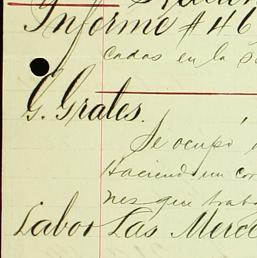 Informe # 46
cadas en la
G. Grates.
Se ocupó
Haciendo un cor
nes que trab
Labor Las Merce